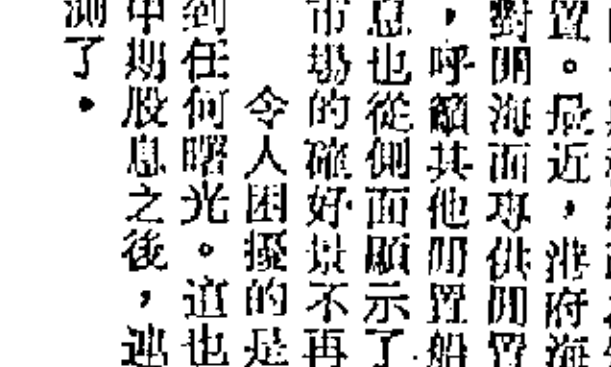 置。最近，港府海
對開海面專供閒置
，呼籲其他閒置船
息也從側面顯示了
市場的確好景不再
令人困擾的是
到任何曙光。這也
中期股息之後，連
測了。